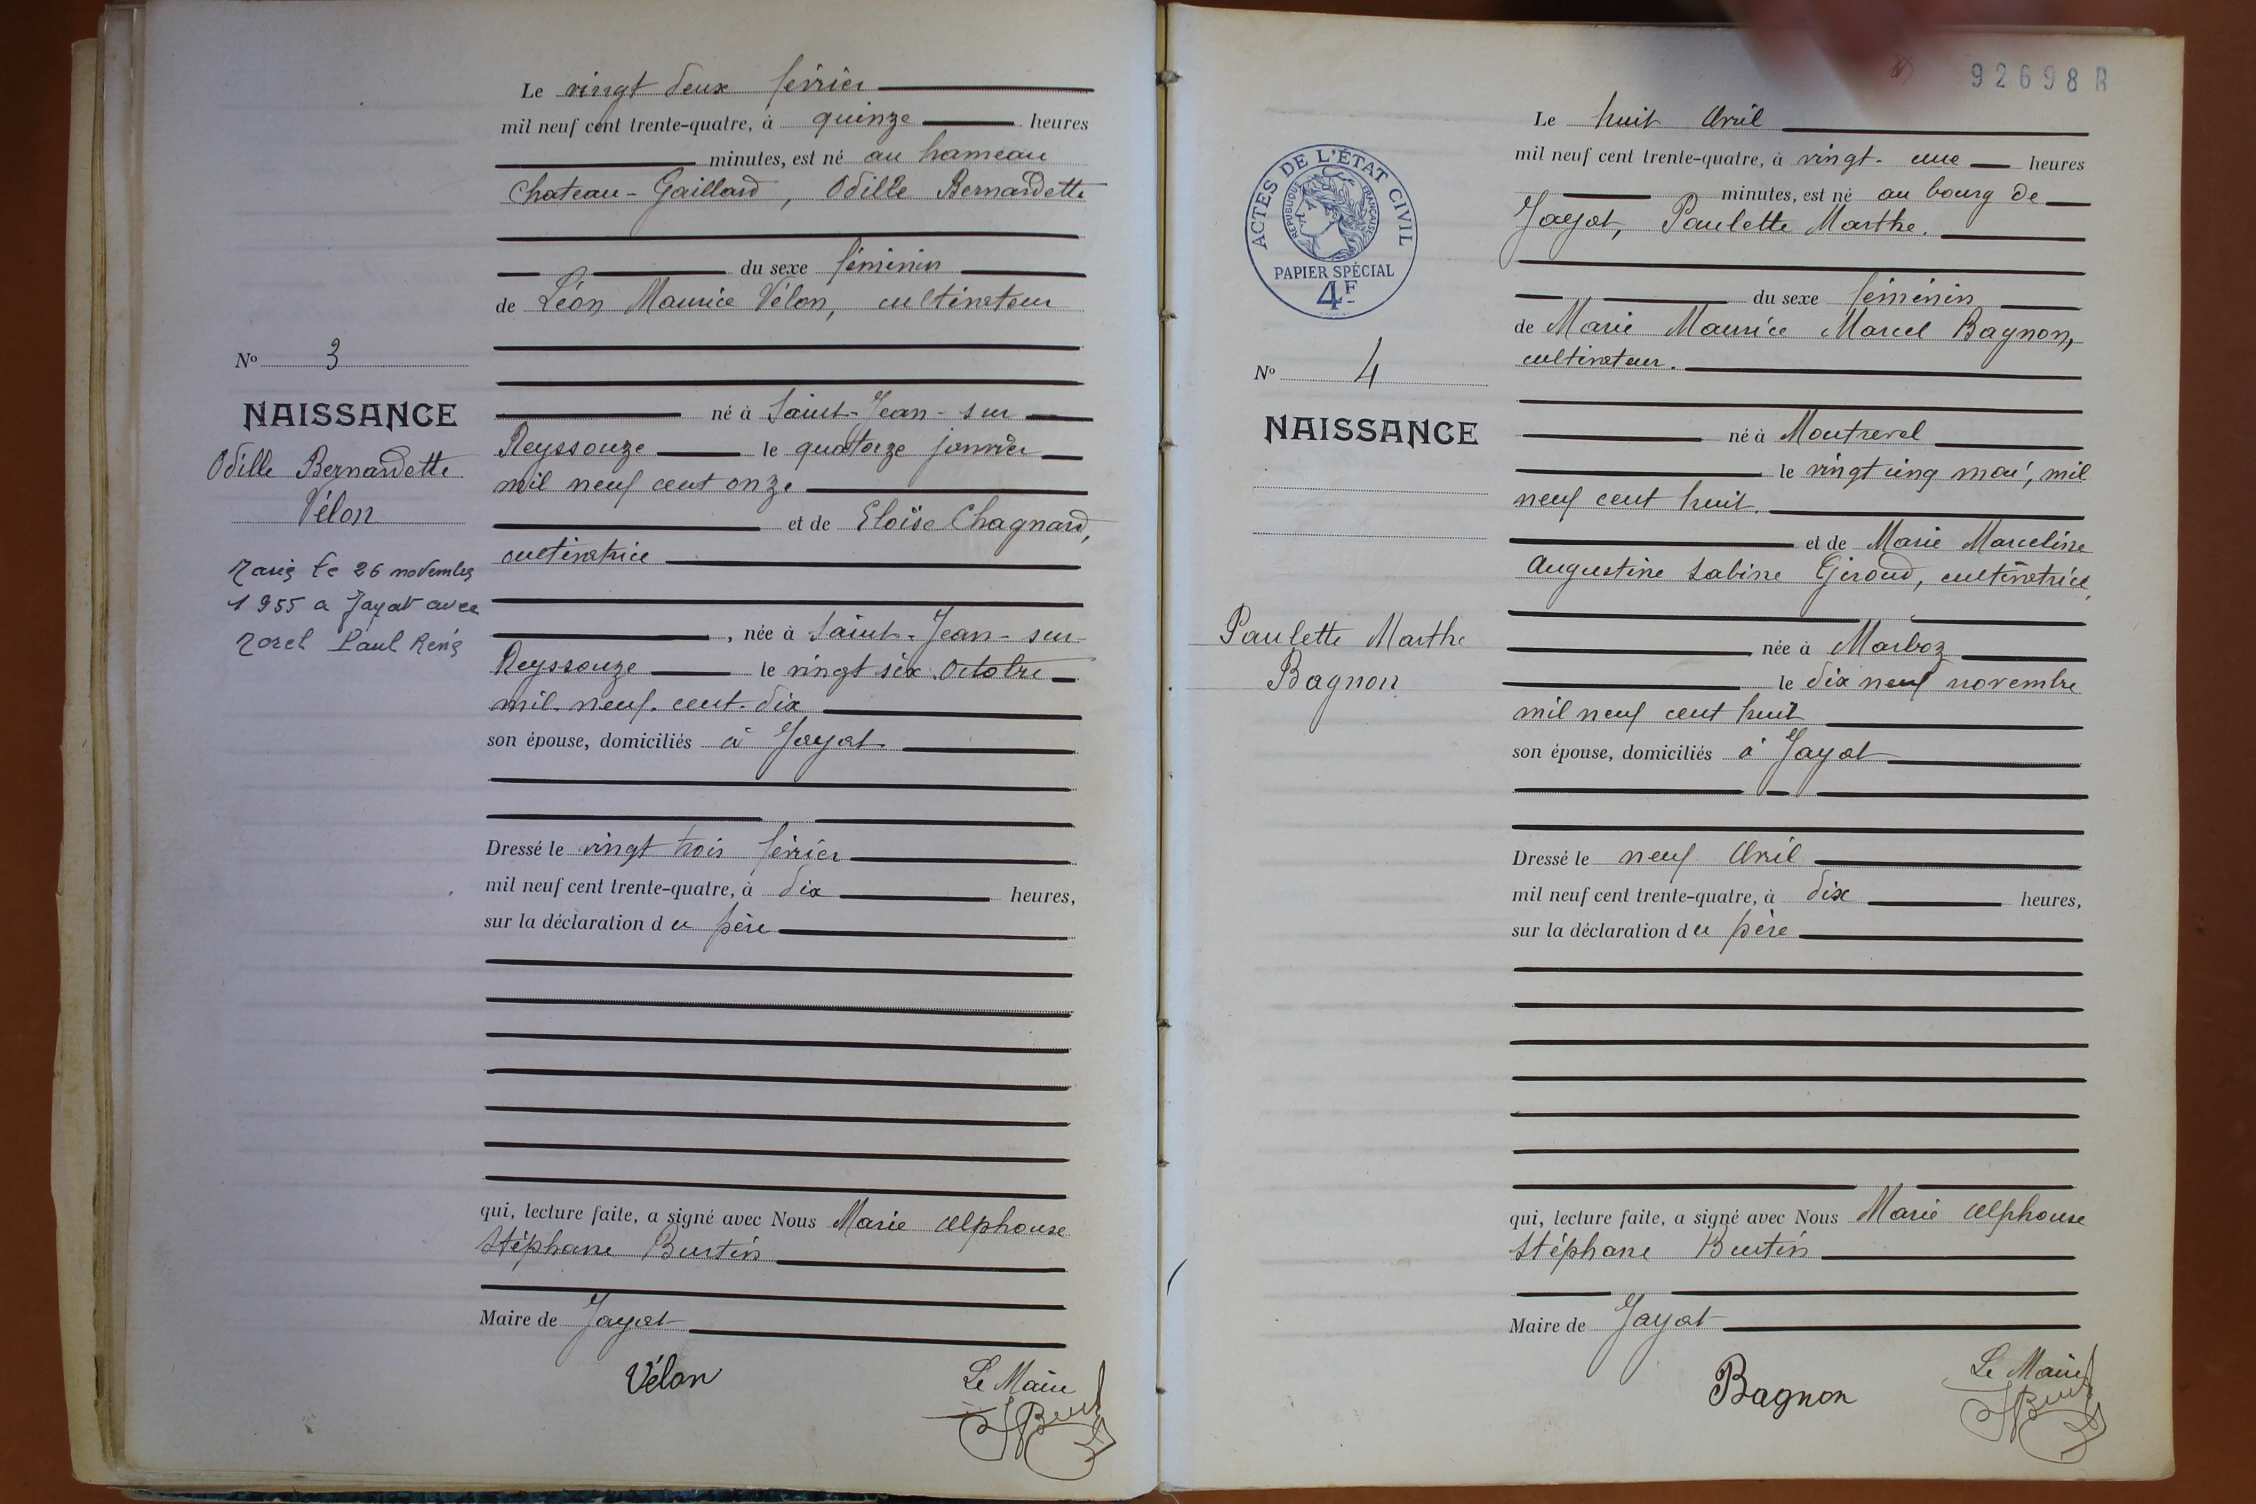 Le vingt deux février
mil neuf cent trente-quatre, à quinze heures
minutes, est né au hameau
Chateau-Gaillard, Odille Bernardette
du sexe féminin
de Léon Maurice Vélon, cultivateur
né à Saint-Jean-sur
Reyssouze le quatorze janvier
mil neuf cent onze
et de Eloïse Chagnard,
cultivatrice
, née à Saint-Jean-sur
Reyssouze le vingt six Octobre
mil neuf cent dix
son épouse, domiciliés à Jayat
Dressé le vingt trois février
mil neuf cent trente-quatre, à dix heures,
sur la déclaration du père
qui, lecture faite, a signé avec Nous Marie Alphonse
Stéphane Burtin
Maire de Jayat
Vélon
Le Maire
No 3
NAISSANCE
Odille Bernardette
Vélon
Marié le 26 novembre
1955 a Jayat avec
Morel Paul René
92698 B
ACTES DE L'ÉTAT CIVIL
RÉPUBLIQUE FRANÇAISE
PAPIER SPÉCIAL
4F
No 4
NAISSANCE
Paulette Marthe
Bagnon
Le huit Avril
mil neuf cent trente-quatre, à vingt-une heures
minutes, est né au bourg de
Jayat, Paulette Marthe.
du sexe féminin
de Marie Maurice Marcel Bagnon,
cultivateur.
né à Montrevel
le vingt cinq mai, mil
neuf cent huit.
et de Marie Marceline
Augustine Sabine Giroud, cultivatrice,
née à Marboz
le dix neuf novembre
mil neuf cent huit
son épouse, domiciliés à Jayat
Dressé le neuf Avril
mil neuf cent trente-quatre, à dix heures,
sur la déclaration du père
qui, lecture faite, a signé avec Nous Marie Alphonse
Stéphane Burtin
Maire de Jayat
Bagnon
Le Maire